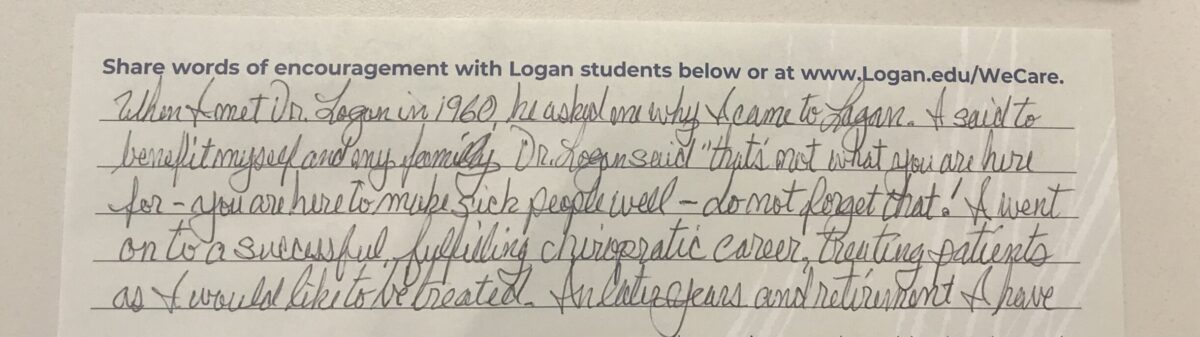 Share words of encouragement with Logan students below or at www.Logan.edu/WeCare.
When I met Dr. Logan in 1960, he asked me why I came to Logan. I said to
benefit myself and my family. Dr. Logan said "that's not what you are here
for - you are here to make sick people well - do not forget that! I went
on to a successful, fulfilling chiropratic career, treating patients
as I would like to be treated. In later years and retirement I have